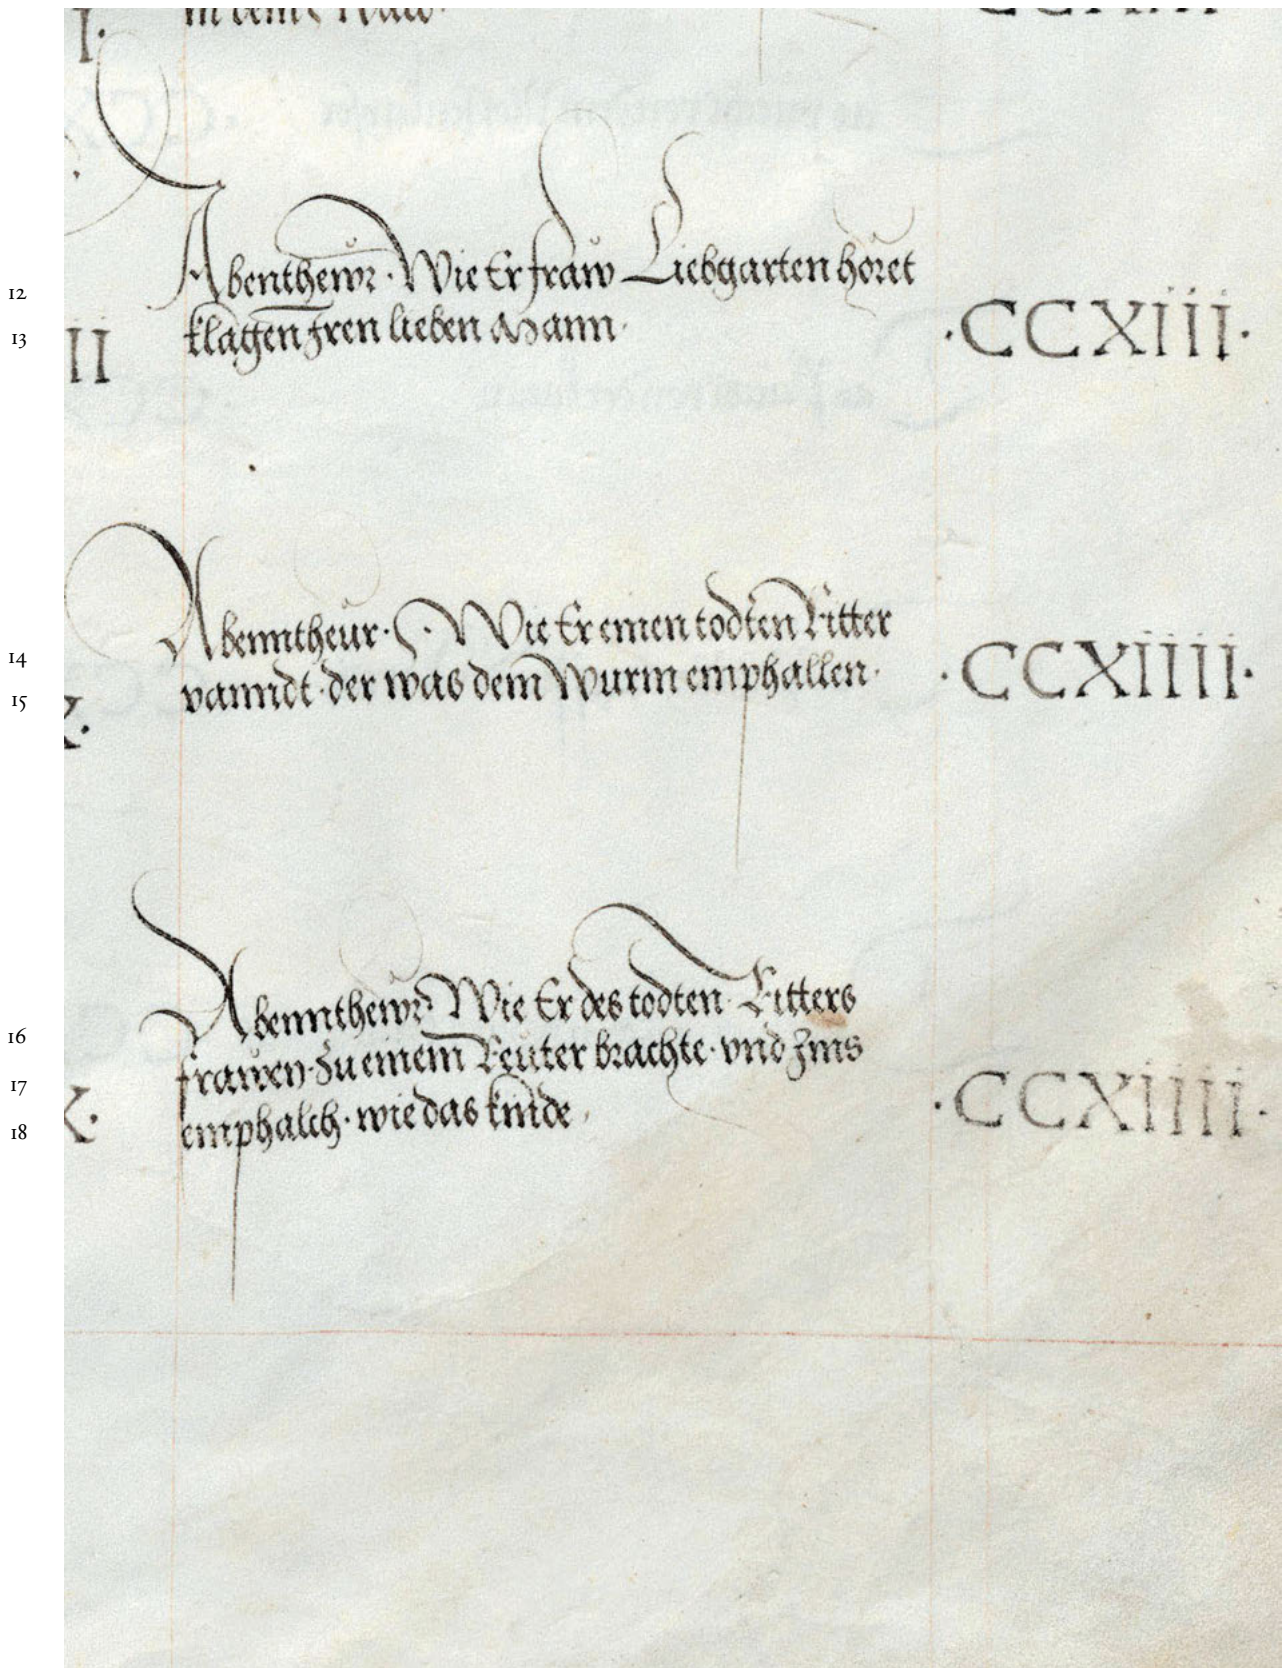 12 Abenthewr · Wie Er fraw Liebgarten höret
13 klagen Jren lieben Mann · ·CCXIII·
14 Abenntheur · Wie Er einen todten Ritter
15 vanndt · der was dem Wurm emphallen · ·CCXIIII·
16 Abennthewr Wie Er des todten Ritters
17 frawen · zu einem Reuter brachte · vnd Jms
18 emphalch · wie das kinde · ·CCXIIII·